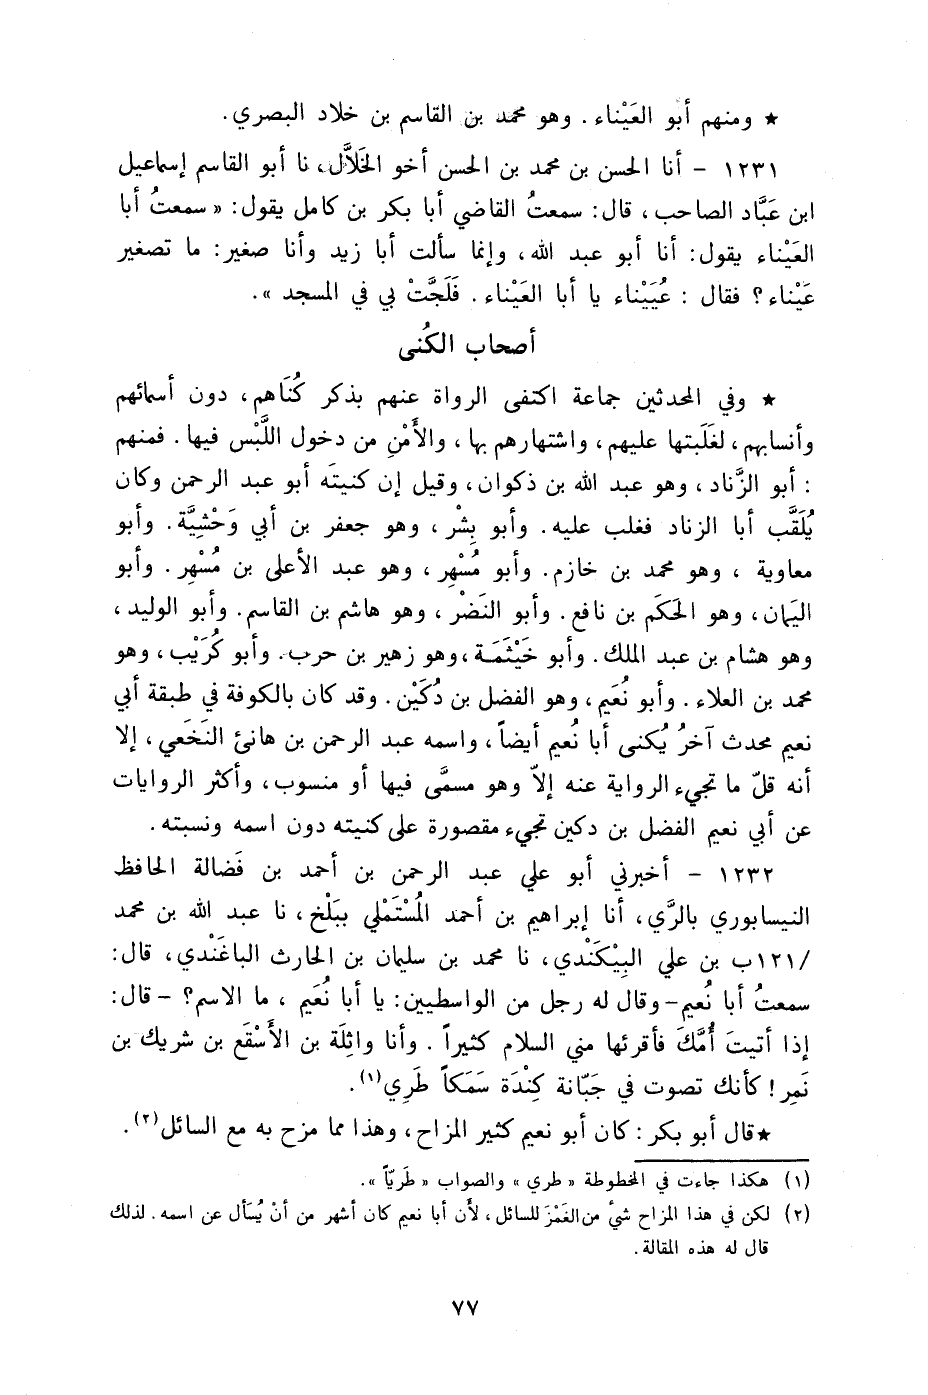 ★ ومنهم أبو العَيْناء . وهو محمد بن القاسم بن خلاد البصري .
١٢٣١ - أنا الحسن بن محمد بن الحسن أخو الخَلاَّل، نا أبو القاسم إسماعيل
ابن عَبَّاد الصاحب ، قال: سمعتُ القاضي أبا بكر بن كامل يقول: « سمعتُ أبا
العَيْناء يقول: أنا أبو عبد الله، وإنما سألت أبا زيد وأنا صغير: ما تصغير
عَيْناء؟ فقال : عُيَيْناء يا أبا العَيْناء . فَلَجَّتْ بي في المسجد ».
أصحاب الكُنى
★ وفي المحدثين جماعة اكتفى الرواة عنهم بذكر كُنَاهم، دون أسمائهم
وأنسابهم ، لغَلَبتها عليهم، واشتهارهم بها ، والأَمْنِ من دخول اللَّبْس فيها . فمنهم
: أبو الزَّناد ، وهو عبد الله بن ذكوان، وقيل إن كنيتَه أبو عبد الرحمن وكان
يُلَقَّب أبا الزناد فغلب عليه. وأبو بِشْر ، وهو جعفر بن أبي وَحْشِيَّة. وأبو
معاوية ، وهو محمد بن خازم. وأبو مُسْهِر ، وهو عبد الأعلى بن مُسْهِر. وأبو
اليَمان، وهو الحَكَم بن نافع. وأبو النَضْر ، وهو هاشم بن القاسم. وأبو الوليد ،
وهو هشام بن عبد الملك. وأبو خَيْثَمَـة ،وهو زهير بن حرب. وأبو كُرَيْب، وهو
محمد بن العلاء . وأبو نُعَيم، وهو الفضل بن دُكَيْن. وقد كان بالكوفة في طبقة أبي
نعيم محدث آخرُ يُكنى أبا نُعيم أيضاً، واسمه عبد الرحمن بن هانئ النَخَعي، إلا
أنه قلّ ما تجيء الرواية عنه إلاّ وهو مسمَّى فيها أو منسوب، وأكثر الروايات
عن أبي نعيم الفضل بن دكين تجيء مقصورة على كنيته دون اسمه ونسبته.
١٢٣٢ - أخبرني أبو علي عبد الرحمن بن أحمد بن فَضالة الحافظ
النيسابوري بالرَّي، أنا إبراهيم بن أحمد المُسْتَمْلي ببَلْخ، نا عبد الله بن محمد
/١٢١ب بن علي البِيْكَنْدي، نا محمد بن سليمان بن الحارث الباغَنْدي، قال:
سمعتُ أبا نُعيم- وقال له رجل من الواسطيين: يا أبا نُعَيم ، ما الاسم؟ - قال:
إذا أتيتَ أُمَّكَ فأقرئها مني السلام كثيراً . وأنا واثِلَة بن الأَسْقَع بن شريك بن
نَمِر! كأنك تصوت في جَبّانة كِنْدَة سَمَكاً طَرِي(١).
★قال أبو بكر : كان أبو نعيم كثير المزاح، وهذا مما مزح به مع السائل(٢).
(١) هكذا جاءت في المخطوطة « طري » والصواب « طَريّاً ».
(٢) لكن في هذا المزاح شيٌ من الغَمْزَ للسائل، لأن أبا نعيم كان أشهر من أنْ يُسأل عن اسمه. لذلك
قال له هذه المقالة.
٧٧